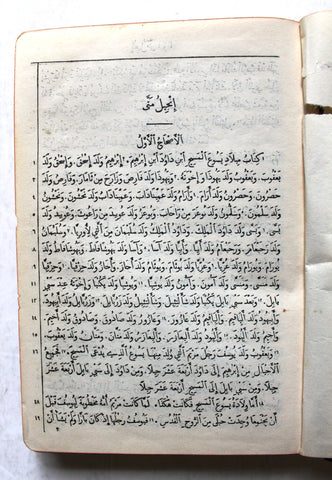 إِنْجِيلُ مَتَّى
اَلْأَصْحَاحُ الْأَوَّلُ
كِتَابُ مِيلَادِ يَسُوعَ الْمَسِيحِ ابْنِ دَاوُدَ ابْنِ إِبْرٰهِيمَ. إِبْرٰهِيمُ وَلَدَ إِسْحٰقَ. وَإِسْحٰقُ وَلَدَ
يَعْقُوبَ. وَيَعْقُوبُ وَلَدَ يَهُوذَا وَإِخْوَتَهُ. وَيَهُوذَا وَلَدَ فَارِصَ وَزَارَحَ مِنْ ثَامَارَ. وَفَارِصُ وَلَدَ
حَصْرُونَ. وَحَصْرُونُ وَلَدَ أَرَامَ. وَأَرَامُ وَلَدَ عَمِّينَادَابَ. وَعَمِّينَادَابُ وَلَدَ نَحْشُونَ. وَنَحْشُونُ
وَلَدَ سَلْمُونَ. وَسَلْمُونُ وَلَدَ بُوعَزَ مِنْ رَاحَابَ. وَبُوعَزُ وَلَدَ عُوبِيدَ مِنْ رَاعُوثَ. وَعُوبِيدُ وَلَدَ
يَسَّى. وَيَسَّى وَلَدَ دَاوُدَ الْمَلِكَ. وَدَاوُدُ الْمَلِكُ وَلَدَ سُلَيْمَانَ مِنَ الَّتِي لِأُورِيَّا. وَسُلَيْمَانُ
وَلَدَ رَحَبْعَامَ. وَرَحَبْعَامُ وَلَدَ أَبِيَّا. وَأَبِيَّا وَلَدَ آسَا. وَآسَا وَلَدَ يَهُوشَافَاطَ. وَيَهُوشَافَاطُ وَلَدَ
يُورَامَ. وَيُورَامُ وَلَدَ عُزِّيَّا. وَعُزِّيَّا وَلَدَ يُوثَامَ. وَيُوثَامُ وَلَدَ أَحَازَ. وَأَحَازُ وَلَدَ حِزْقِيَّا. وَحِزْقِيَّا
وَلَدَ مَنَسَّى. وَمَنَسَّى وَلَدَ آمُونَ. وَآمُونُ وَلَدَ يُوشِيَّا. وَيُوشِيَّا وَلَدَ يَكُنْيَا وَإِخْوَتَهُ عِنْدَ سَبْيِ
بَابِلَ. وَبَعْدَ سَبْيِ بَابِلَ يَكُنْيَا وَلَدَ شَأَلْتِئِيلَ. وَشَأَلْتِئِيلُ وَلَدَ زَرُبَّابِلَ. وَزَرُبَّابِلُ وَلَدَ أَبِيهُودَ.
وَأَبِيهُودُ وَلَدَ أَلِيَاقِيمَ. وَأَلِيَاقِيمُ وَلَدَ عَازُورَ. وَعَازُورُ وَلَدَ صَادُوقَ. وَصَادُوقُ وَلَدَ أَخِيمَ.
وَأَخِيمُ وَلَدَ أَلِيُودَ. وَأَلِيُودُ وَلَدَ أَلِيعَازَرَ. وَأَلِيعَازَرُ وَلَدَ مَتَّانَ. وَمَتَّانُ وَلَدَ يَعْقُوبَ.
وَيَعْقُوبُ وَلَدَ يُوسُفَ رَجُلَ مَرْيَمَ الَّتِي وُلِدَ مِنْهَا يَسُوعُ الَّذِي يُدْعَى الْمَسِيحَ. فَجَمِيعُ
الْأَجْيَالِ مِنْ إِبْرٰهِيمَ إِلَى دَاوُدَ أَرْبَعَةَ عَشَرَ جِيلًا. وَمِنْ دَاوُدَ إِلَى سَبْيِ بَابِلَ أَرْبَعَةَ عَشَرَ
جِيلًا. وَمِنْ سَبْيِ بَابِلَ إِلَى الْمَسِيحِ أَرْبَعَةَ عَشَرَ جِيلًا
أَمَّا وِلَادَةُ يَسُوعَ الْمَسِيحِ فَكَانَتْ هٰكَذَا. لَمَّا كَانَتْ مَرْيَمُ أُمُّهُ مَخْطُوبَةً لِيُوسُفَ قَبْلَ
أَنْ يَجْتَمِعَا وُجِدَتْ حُبْلَى مِنَ الرُّوحِ الْقُدُسِ. فَيُوسُفُ رَجُلُهَا إِذْ كَانَ بَارًّا وَلَمْ يَشَأْ أَنْ